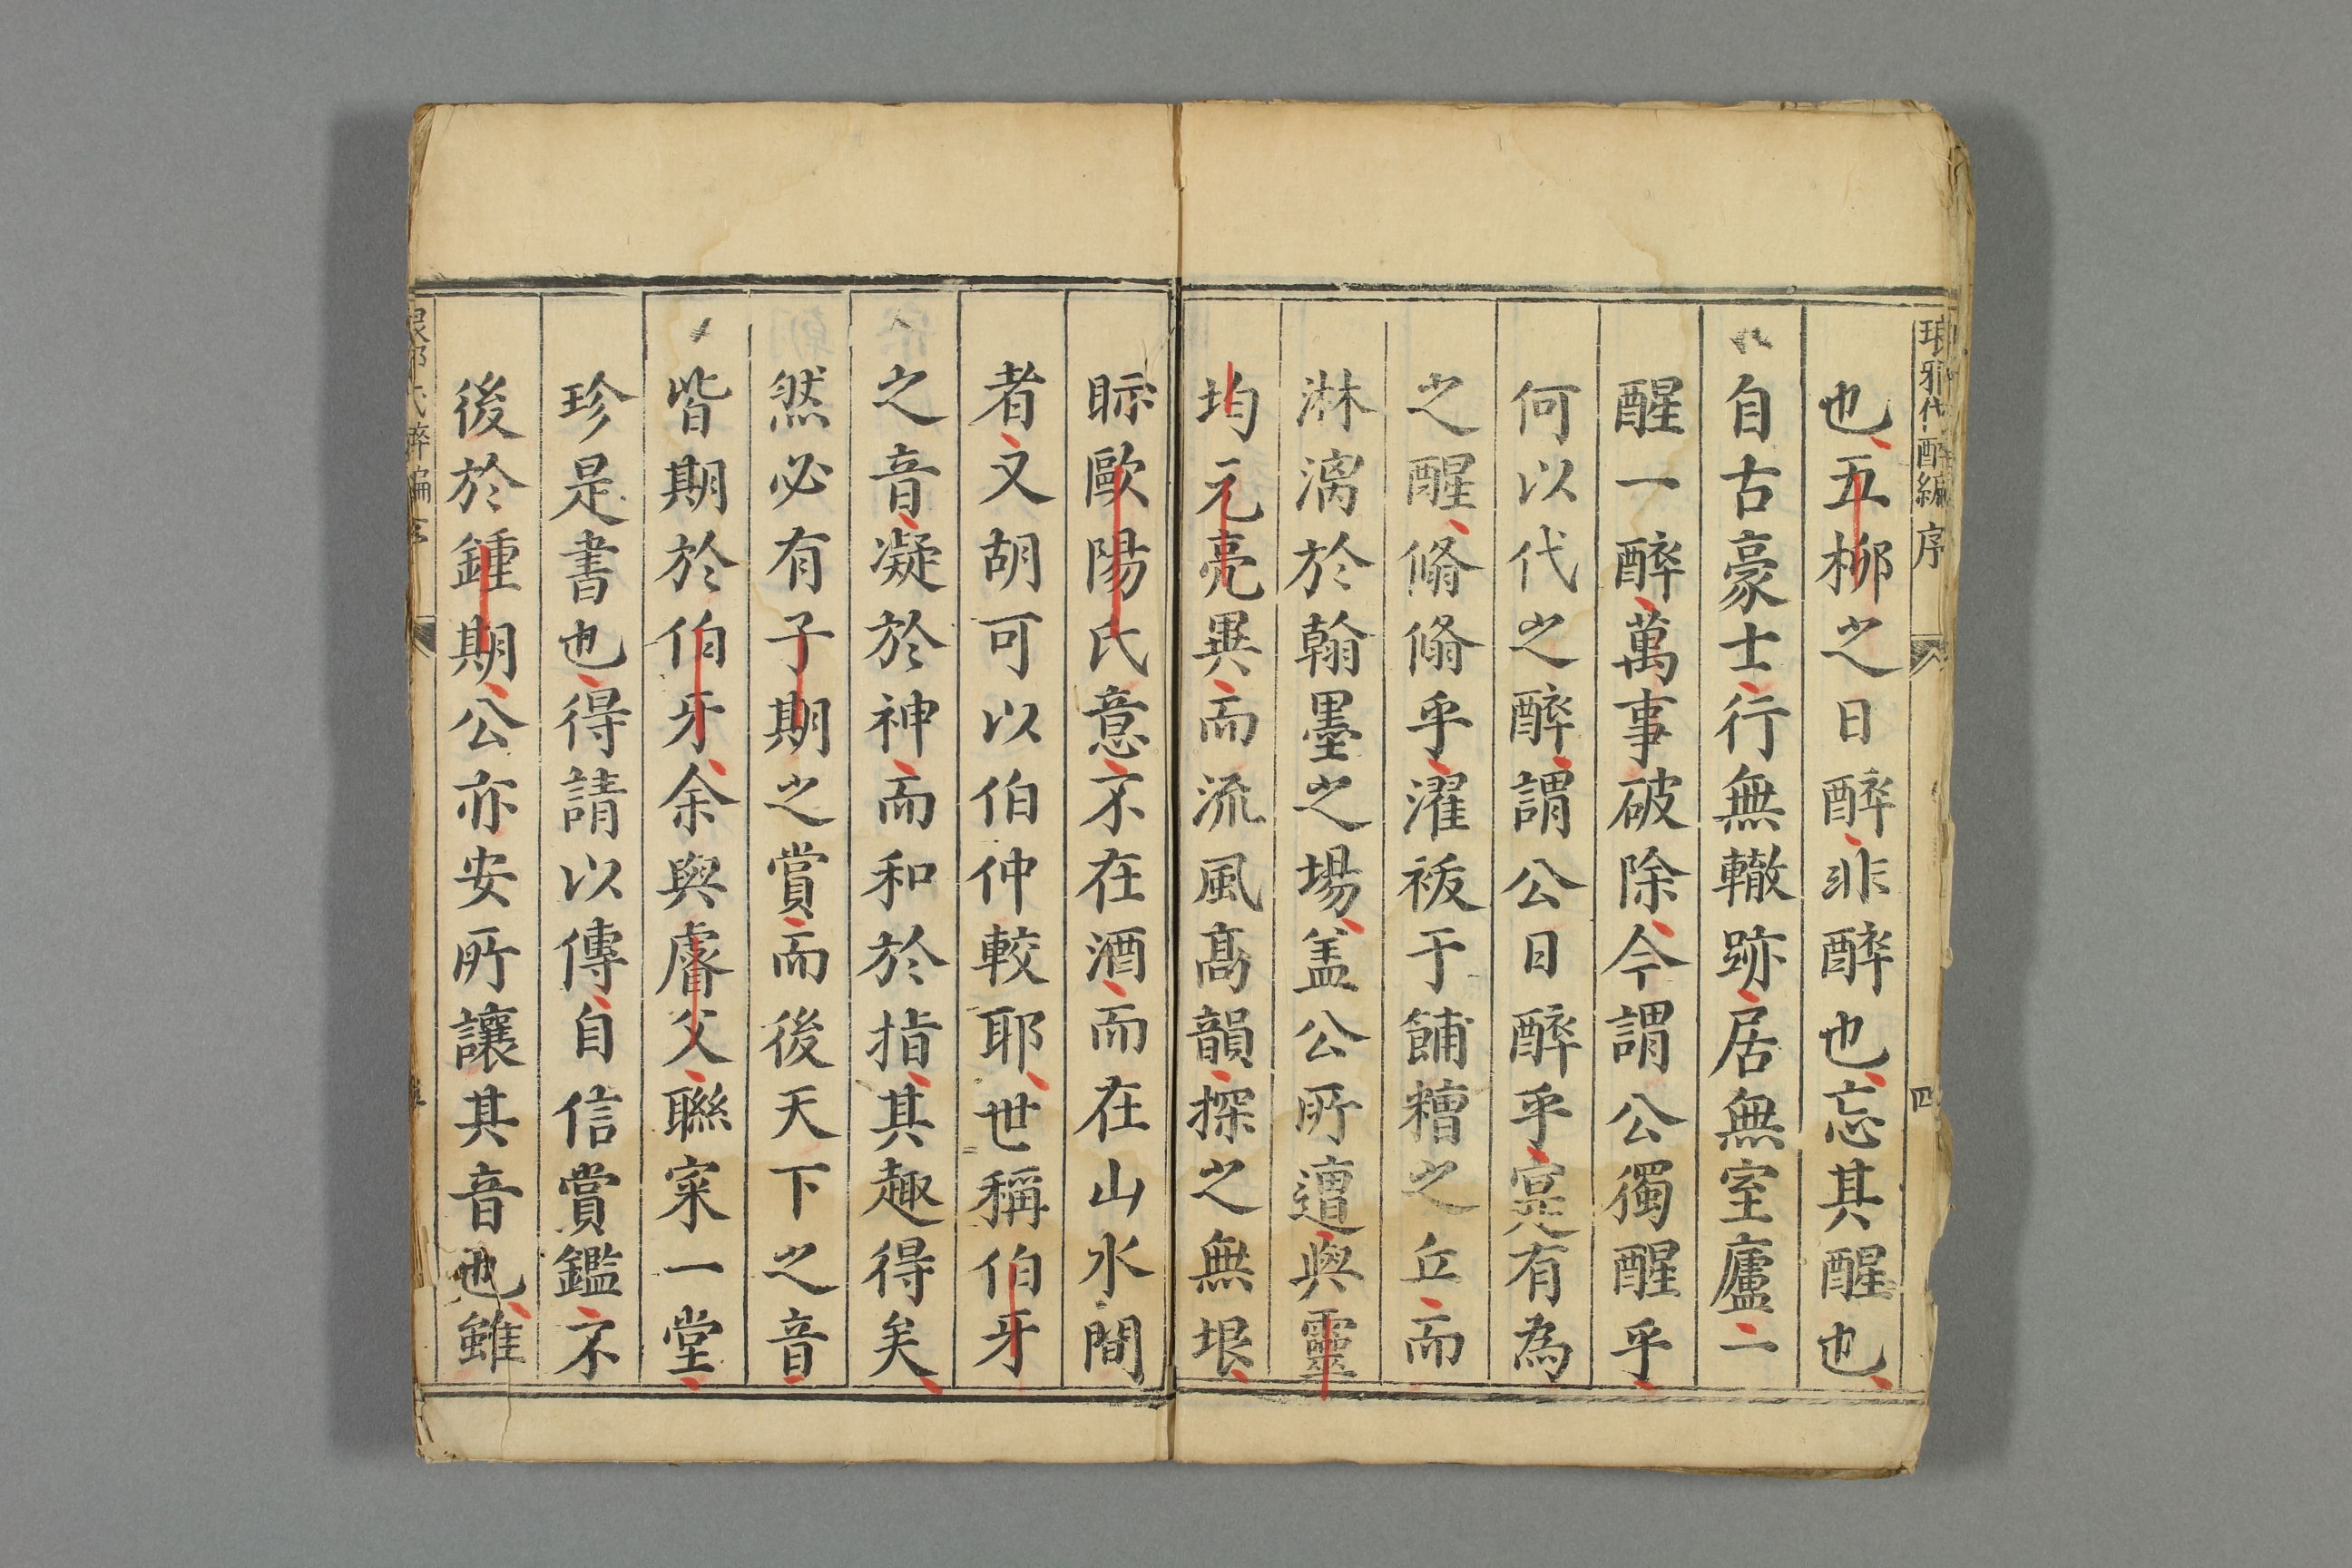 琅邪代醉編 序 四
也五柳之日醉非醉也忘其醒也
自古豪士行無轍跡居無室廬二
醒一醉萬事破除今謂公獨醒乎
何以代之醉謂公日醉乎寔有為
之醒翛翛乎濯祓于餔糟之丘而
淋漓於翰墨之場盖公所遭與靈
均元亮異而流風高韻探之無垠
眎歐陽氏意不在酒而在山水間
者文胡可以伯仲較耶世稱伯牙
之音凝於神而和於指其趣得矣
然必有子期之賞而後天下之音
皆期於伯牙余與睿父聯寀一堂
珍是書也得請以傳自信賞鑑不
後於鍾期公亦安所讓其音也雖